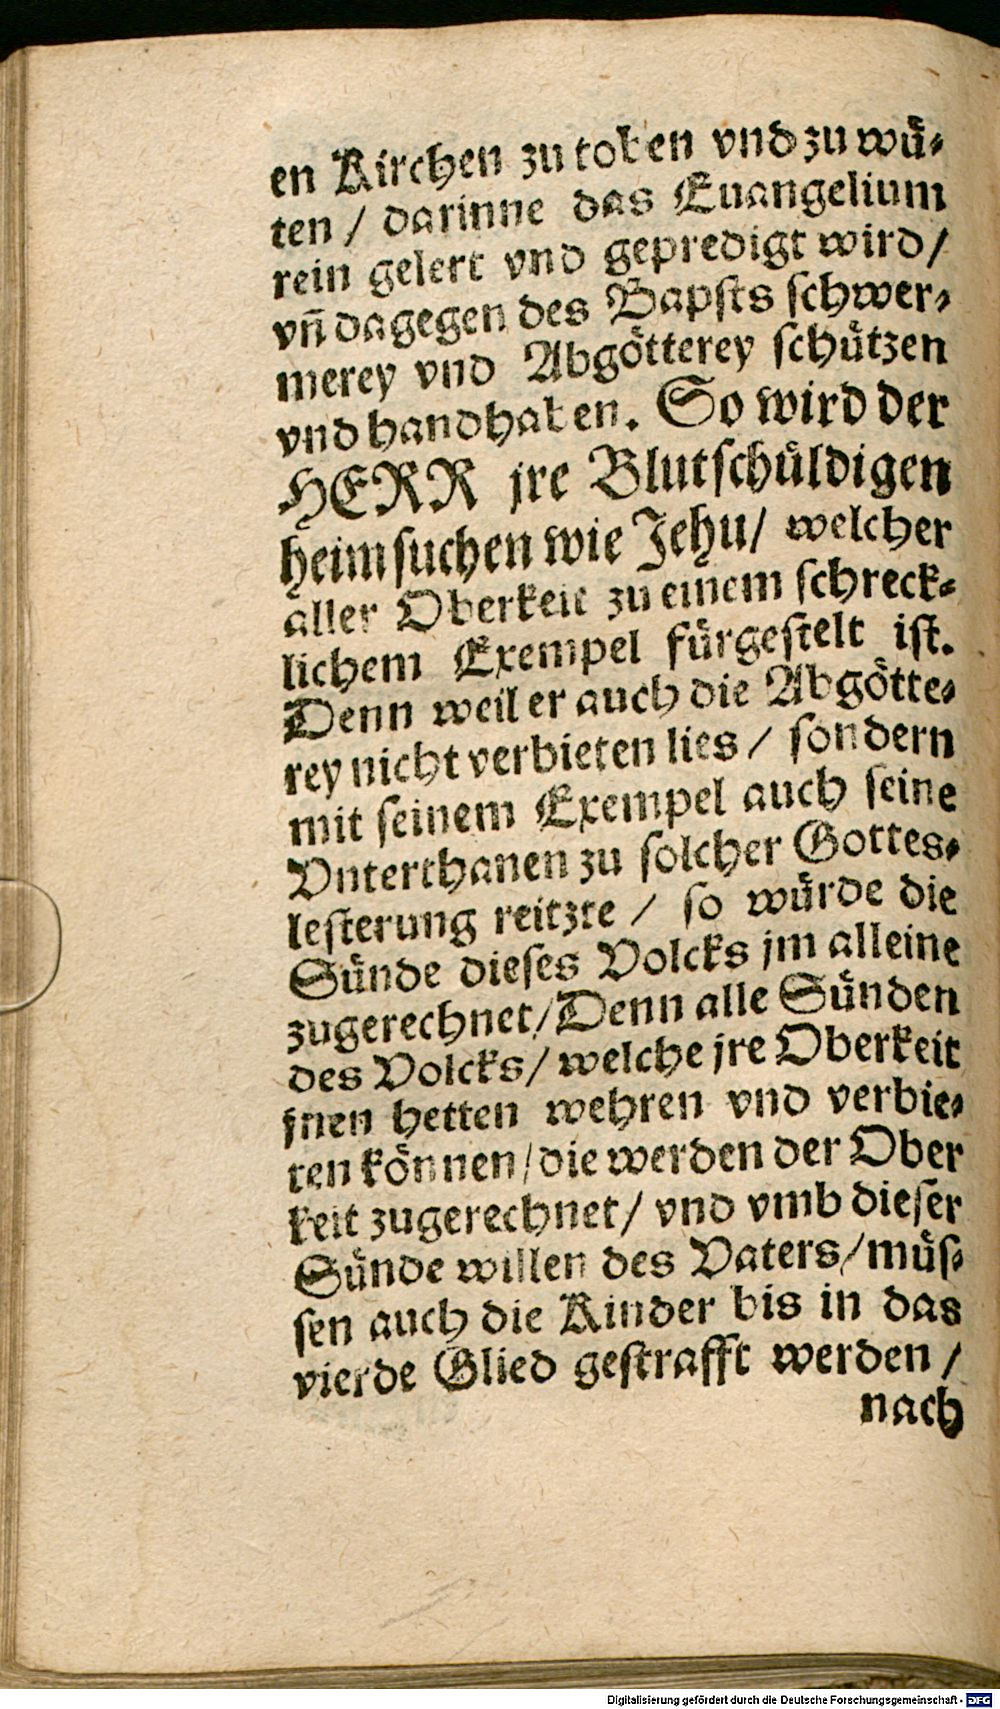 en Kirchen zu toben vnd zu wü⸗
ten / darinne das Euangelium
rein gelert vnd gepredigt wird /
vn̄ dagegen des Bapsts schwer⸗
merey vnd Abgötterey schützen
vnd handhaben. So wird der
HERR jre Blutschüldigen
heimsuchen wie Jehu / welcher
aller Oberkeit zu einem schreck⸗
lichem Exempel fürgestelt ist.
Denn weil er auch die Abgötte⸗
rey nicht verbieten lies / sondern
mit seinem Exempel auch seine
Vnterthanen zu solcher Gottes⸗
lesterung reitzte / so würde die
Sünde dieses Volcks jm alleine
zugerechnet / Denn alle Sünden
des Volcks / welche jre Oberkeit
jnen hetten wehren vnd verbie⸗
ten können / die werden der Ober
keit zugerechnet / vnd vmb dieser
Sünde willen des Vaters / müs⸗
sen auch die Kinder bis in das
vierde Glied gestrafft werden /
nach
Digitalisierung gefördert durch die Deutsche Forschungsgemeinschaft - DFG